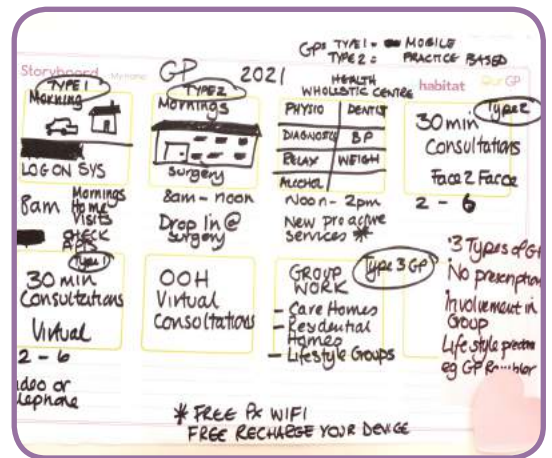 GPs TYPE 1 = MOBILE
TYPE 2 = PRACTICE BASED
Storyboard
GP 2021
habitat
Our GP
TYPE 1
Morning
LOG ON SYS
8am Mornings
Home
Visits
CHECK
APTS
TYPE 2
Mornings
Surgery
8am - noon
Drop In @
surgery
HEALTH
WHOLLISTIC CENTRE
PHYSIO DENTIST
DIAGNOSTIC BP
RELAX WEIGH
ALCOHOL
Noon - 2pm
New proactive
services *
Type 2
30 min
Consultations
Face 2 Face
2 - 6
Type 1
30 min
Consultations
Virtual
2 - 6
OOH
Virtual
Consoltations
GROUP
WORK
- Care Homes
- Residential
Homes
- Lifestyle Groups
Type 3 GP
3 Types of
No prescription
Involvement in
Group
Lifestyle
eg GP
* FREE Px WIFI
FREE RECHARGE YOUR DEVICE